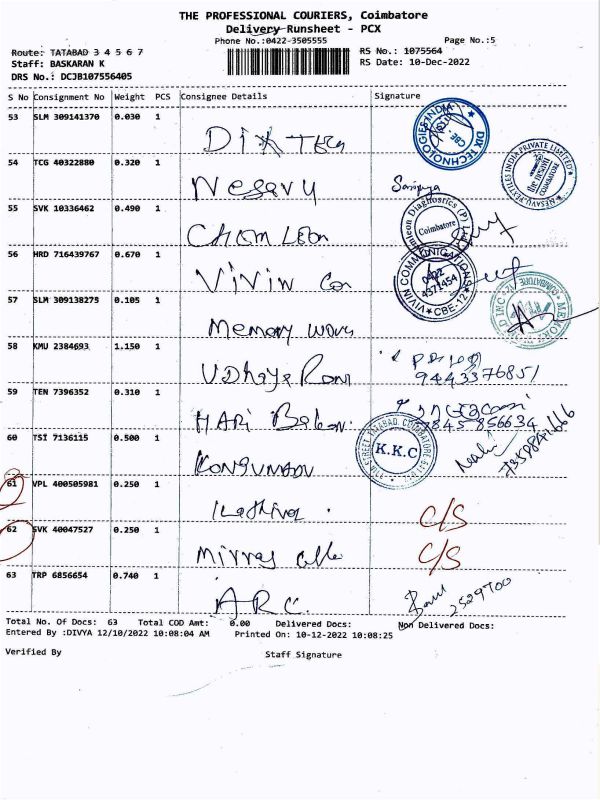 THE PROFESSIONAL COURIERS, Coimbatore
Delivery Runsheet - PCX
Phone No.:0422-3505555
Page No.:5
Route: TATABAD 3 4 5 6 7
RS No.: 1075564
Staff: BASKARAN K
RS Date: 10-Dec-2022
DRS No.: DCJB107556405
S No Consignment No Weight PCS Consignee Details Signature
53 SLM 309141370 0.030 1
DIX TECH
DIX TECHNOLOGIES INDIA
54 TCG 40322880 0.320 1
Nesavu
NESAVU TEXTILES INDIA PRIVATE LIMITED
55 SVK 10336462 0.490 1
Diagnostics (P)
Coimbatore
56 HRD 716439767 0.670 1
ViVin Com
VIVIN COMMUNICATIONS
4371454
CBE-12
57 SLM 309138275 0.105 1
Memory
58 KMU 2384693 1.150 1
Udhaya Rani
9443376851
59 TEN 7396352 0.310 1
HARI
7845856634
60 TSI 7136115 0.500 1
K.K.C
61 VPL 400505981 0.250 1
C/S
62 SVK 40047527 0.250 1
C/S
63 TRP 6856654 0.740 1
ARC
2529700
Total No. Of Docs: 63 Total COD Amt: 0.00 Delivered Docs: Non Delivered Docs:
Entered By :DIVYA 12/10/2022 10:08:04 AM Printed On: 10-12-2022 10:08:25
Verified By Staff Signature